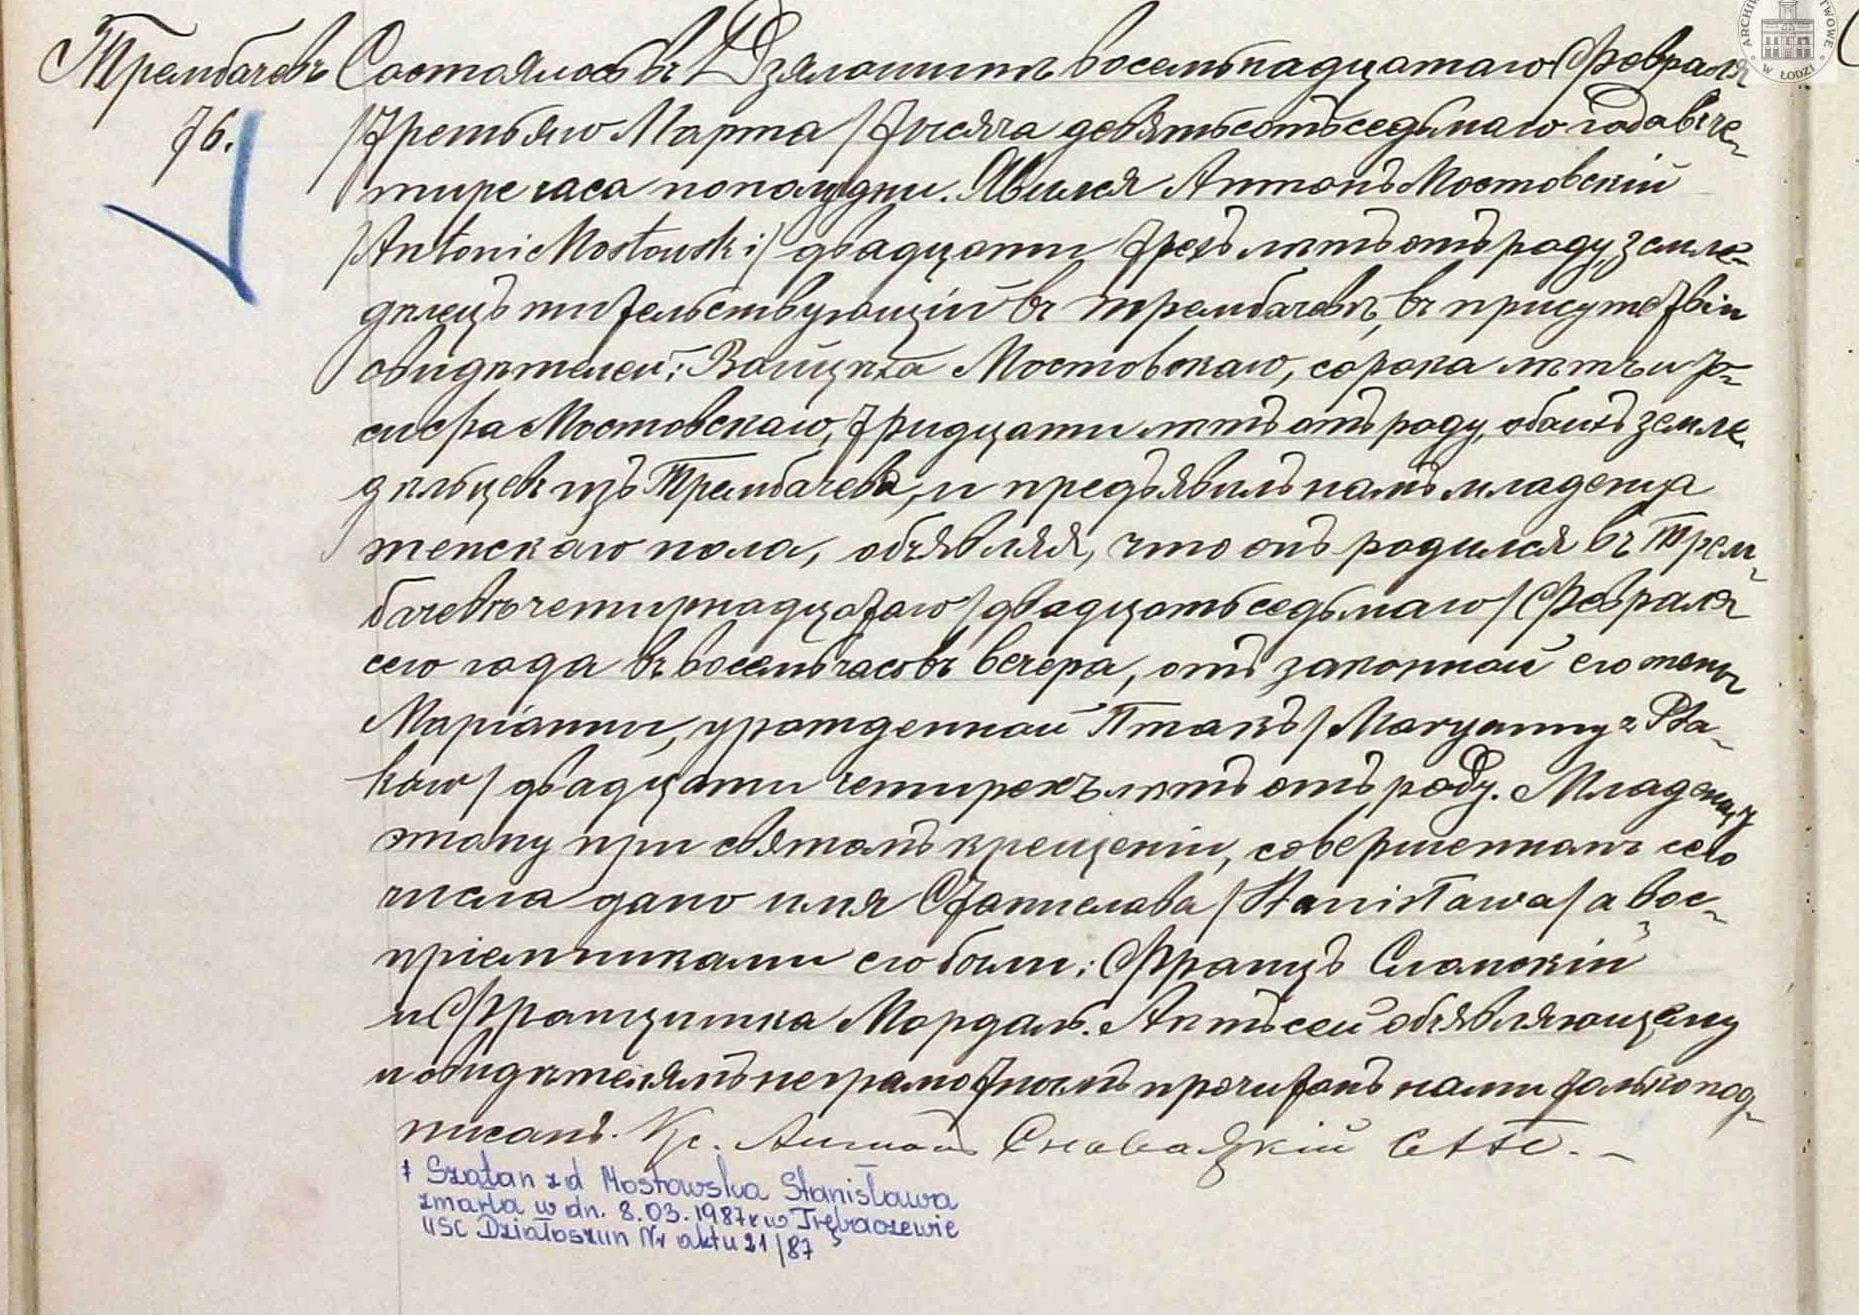 Трембачевъ
76.
Состоялось въ Дзялошинѣ восемьнадцатаго Февраля
/третьяго Марта/ тысяча девятьсотъ седьмаго года въ че-
тыре часа пополудни. Явился Антонъ Мостовскій
/Antoni Mostowski/ двадцати трехъ лѣтъ отъ роду, земле-
дѣлецъ жительствующій въ Трембачевѣ, въ присутствіи
свидѣтелей: Войцѣха Мостовскаго, сорока лѣтъ и Іо-
сифа Мостовскаго, тридцати лѣтъ отъ роду, обоихъ земле
дѣльцевъ изъ Трембачева, и предъявилъ намъ младенца
женскаго пола, объявляя, что онъ родился въ Трем-
бачевѣ четырнадцатаго /двадцать седьмаго/ Февраля
сего года въ восемь часовъ вечера, отъ законной его жены
Маріанны, урожденной Птакъ /Maryanny z Pta-
ków/ двадцати четырехъ лѣтъ отъ роду. Младенцу
этому при святомъ крещеніи, совершенномъ сего
числа дано имя Станислава /Stanisława/ а вос-
пріемниками его были: Францъ Сламскій
и Францишка Мордаль. Актъ сей объявляющему
и свидѣтелямъ неграмотнымъ прочитанъ нами только под-
писанъ. Кс. Антонъ
‡ Szatan zd Mostowska Stanisława
zmarła w dn. 8.03.1987r w Trębaczewie
USC Działoszyn Nr aktu 21/87
ARCHIW TWOWE
W ŁODZI